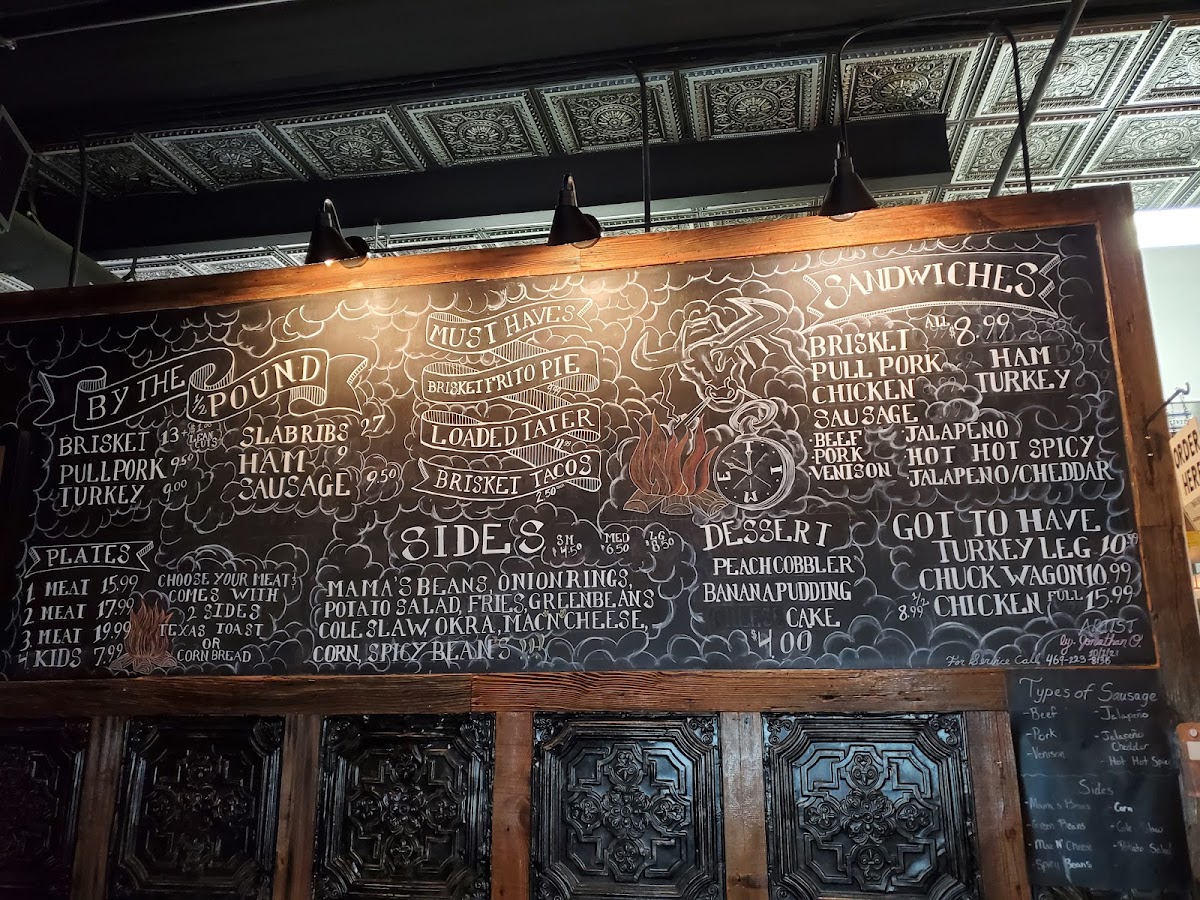 BY THE
1/2 POUND
BRISKET 13
PULL PORK 9.50
TURKEY 9.00
SLAB RIBS 27
HAM 9
SAUSAGE 9.50
MUST HAVES
BRISKET FRITO PIE
LOADED TATER
BRISKET TACOS
2.50
SANDWICHES
ALL $8.99
BRISKET
PULL PORK
CHICKEN
SAUSAGE
HAM
TURKEY
·BEEF
·PORK
VENISON
JALAPENO
HOT HOT SPICY
JALAPENO/CHEDDAR
PLATES
1 MEAT 15.99
2 MEAT 17.99
3 MEAT 19.99
KIDS 7.99
CHOOSE YOUR MEATS
COMES WITH
2 SIDES
TEXAS TOAST
OR
CORN BREAD
SIDES
SM $4.50
MED $6.50
LG $8.50
MAMA'S BEANS, ONION RINGS,
POTATO SALAD, FRIES, GREEN BEANS
COLE SLAW, OKRA, MAC N' CHEESE,
CORN, SPICY BEANS
DESSERT
PEACH COBBLER
BANANA PUDDING
CAKE
$4.00
GOT TO HAVE
TURKEY LEG 10.99
CHUCK WAGON 10.99
1/2 8.99 CHICKEN FULL 15.99
ARTIST
by. Jonathan O.
For Service Call 469-223-8136
E
W
Types of Sausage
-Beef
-Pork
-Venison
-Jalapeno
-Jalapeño
Cheddar
-Hot Hot
Sides
-Mama's Beans
-Green Beans
-Mac N' Cheese
-Spicy Beans
-Corn
-Cole Slaw
-Potato Salad
ORDER
HERE